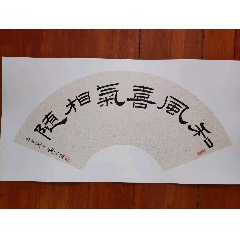 和風喜氣相隨